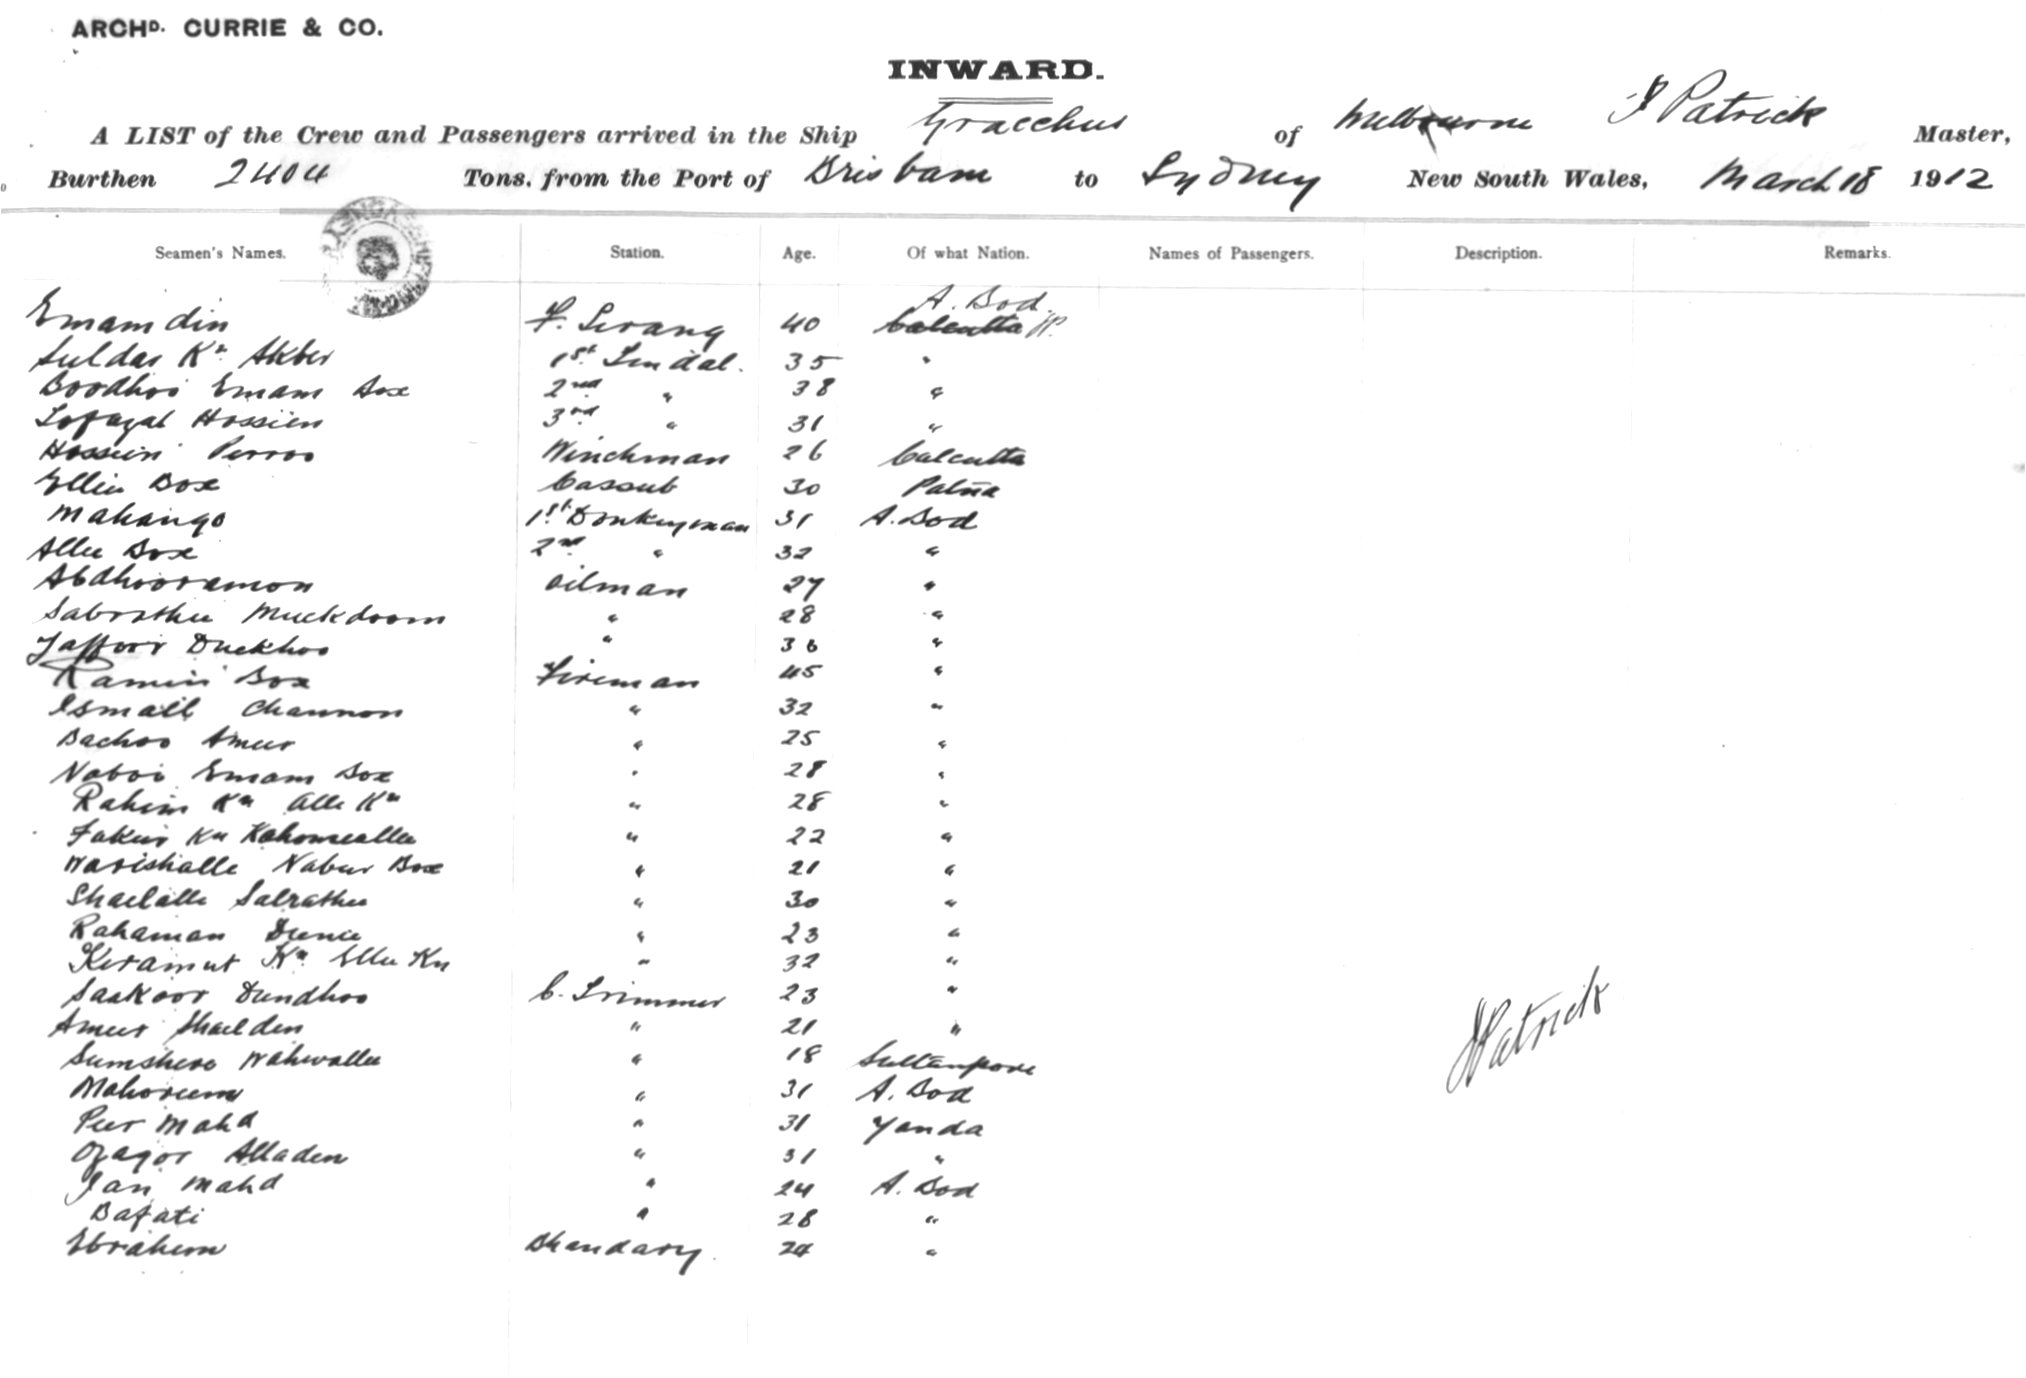 ARCHD. CURRIE & CO.
INWARD.
A LIST of the Crew and Passengers arrived in the Ship Gracchus of Melbourne J Patrick Master,
Burthen 2404 Tons. from the Port of Brisbane to Sydney New South Wales, March 18 1912
Seamen's Names. Station. Age. Of what Nation. Names of Passengers. Description. Remarks.
A. Bod.
Emamdin F. Serang 40 Calcutta
Akber 1st Tindal. 35 "
Boodhoo Emam Box 2nd " 38 "
Tofazal Hossien 3rd " 31 "
Hossein Perroo Winchman 26 Calcutta
Ellie Box Cassub 30 Patna
Mahango 1st Donkeyman 31 A. Bod
Allie Box 2nd " 32 "
Abdhooramon Oilman 27 "
Sabrathee Muckdoom " 28 "
Jaffoor Duckhoo " 36 "
Ramin Box Fireman 45 "
Ismail Channon " 32 "
Bachoo Ameer " 25 "
Naboo Emam Box " 28 "
Rahim Kn Alle Kn " 28 "
Fakir Kn " 22 "
Warishalle Nabur Box " 21 "
Sabrathee " 30 "
Rahaman " 23 "
Keramut Kn Ellee Kn " 32 "
Saakoor Dundhoo C. Trimmer 23 "
Ameer " 21 "
" 18 Sultanpore
" 31 A. Bod
Peer Mahd " 31 Tanda
Alladen " 31 "
Jan Mahd " 24 A. Bod
Bafati " 28 "
Ebrahem Bhandary 24 "
J Patrick